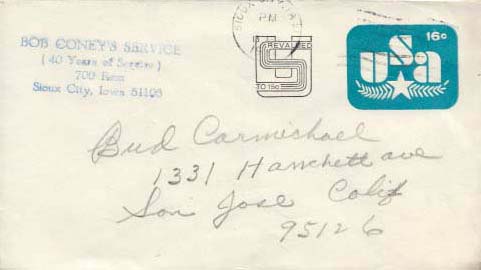 BOB CONEY'S SERVICE
( 40 Years of Service )
700 Ross
Sioux City, Iowa 51103
SIOUX CITY
PM
REVALUED
S
TO 15c
16c
USA
Bud Carmichael
1331 Hanchett ave
San Jose Calif
95126